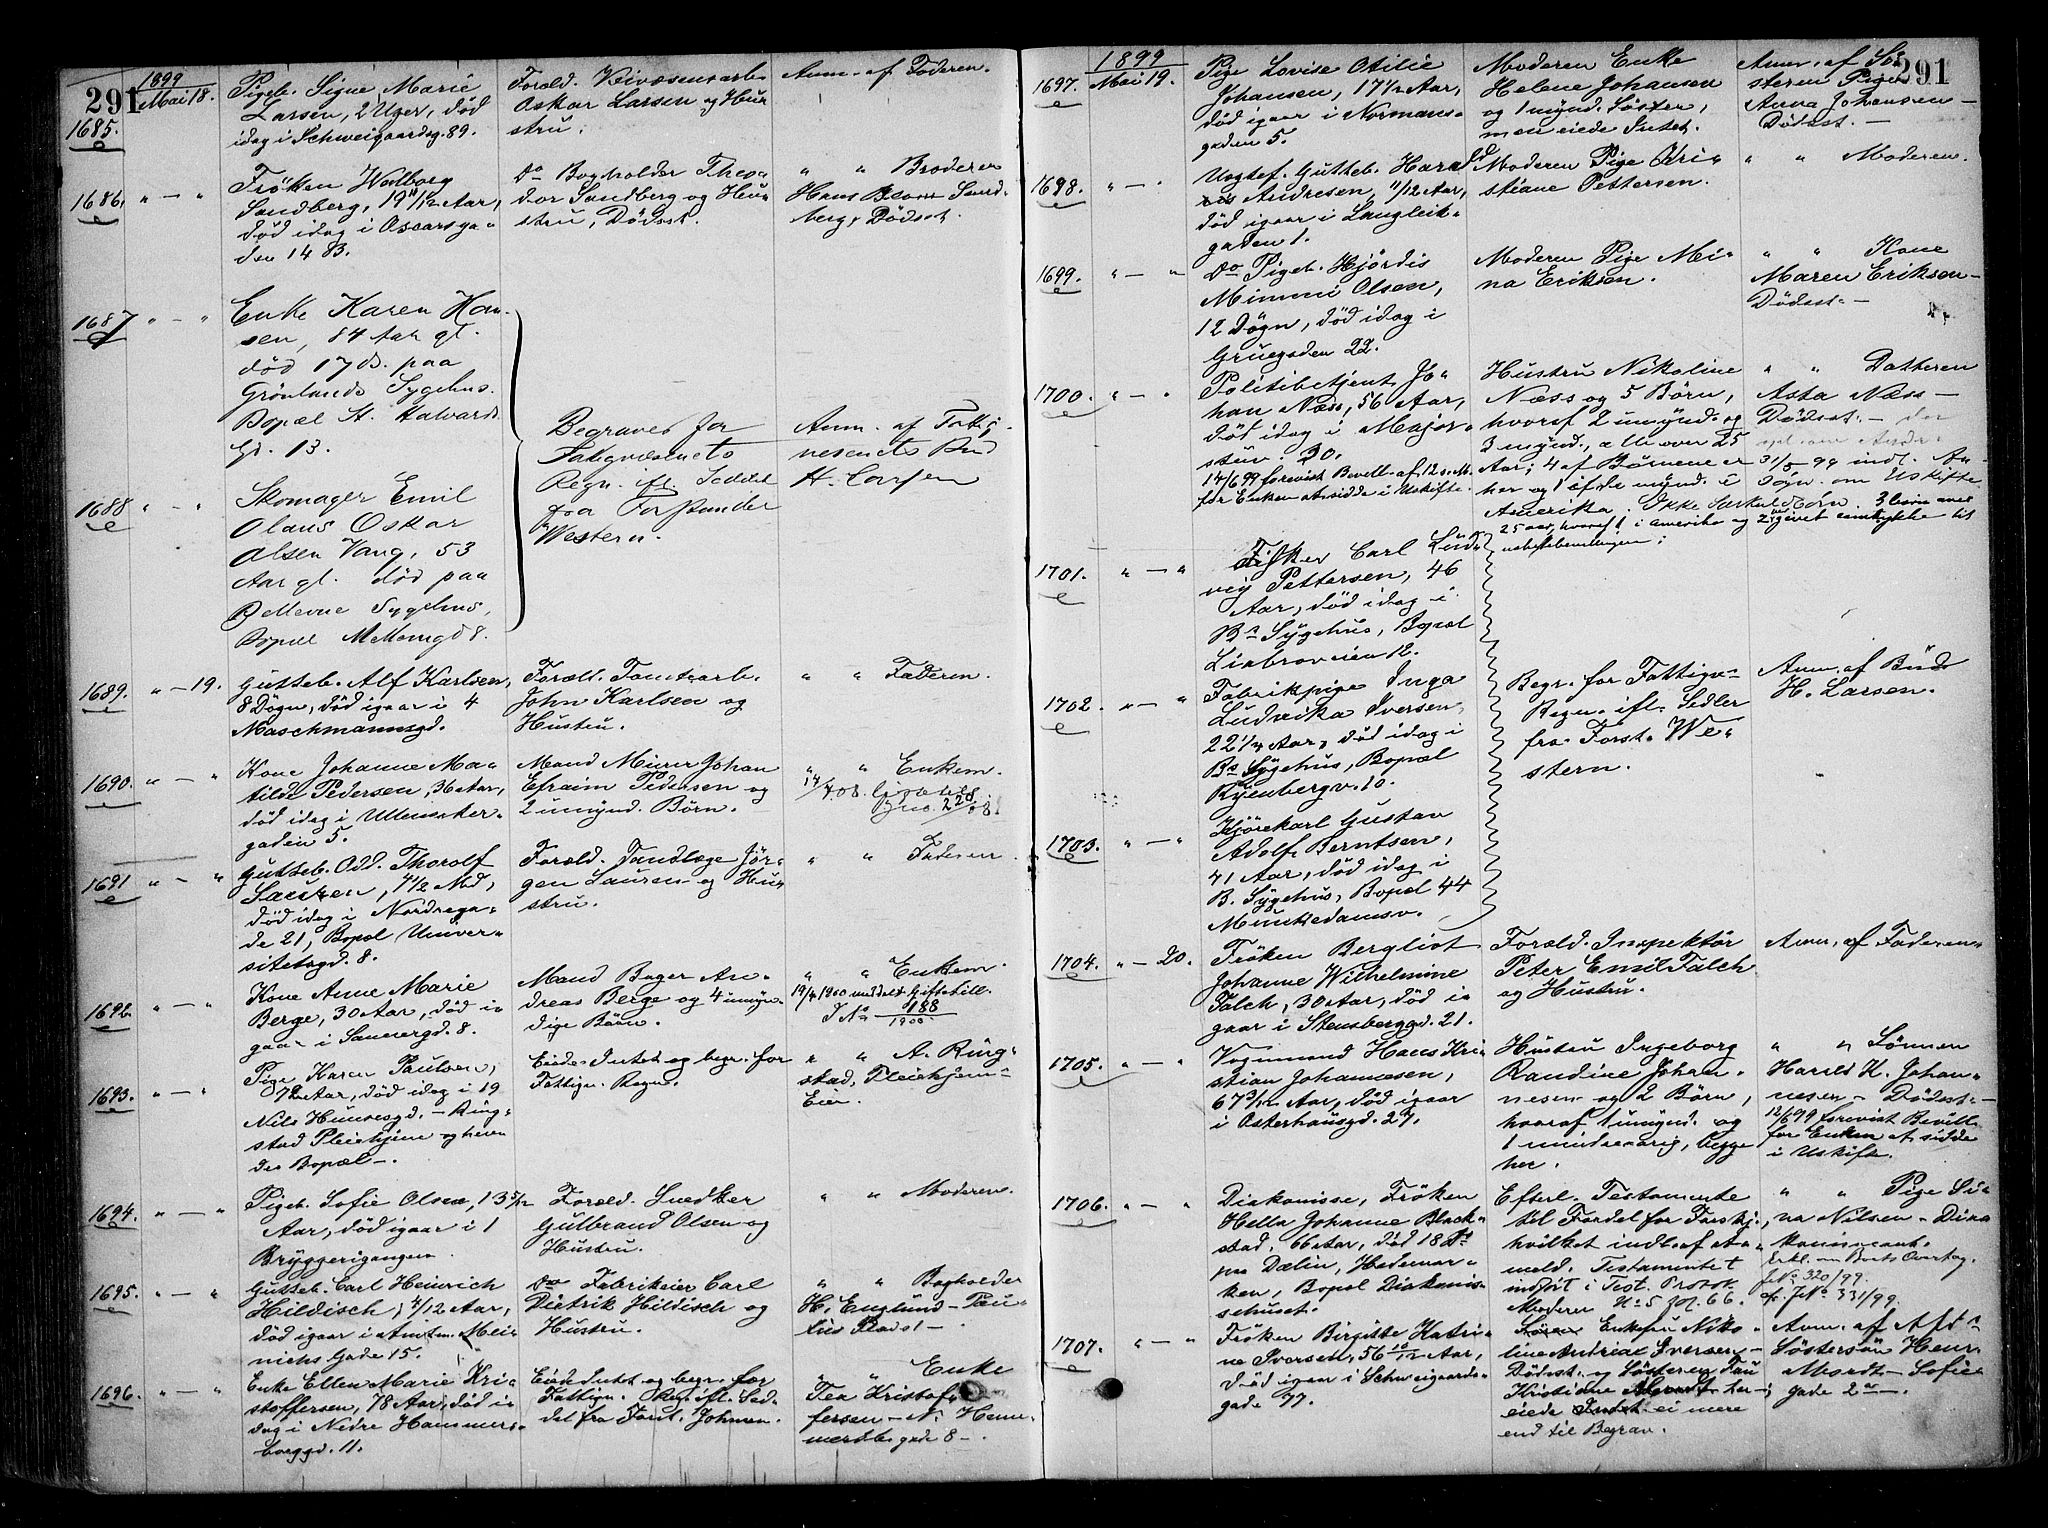 291
1899
Mai 18.
1685.
Pigeb. Signe Marie
Larsen, 2 Uger, død
idag i Schweigaardsg. 89.
Foræld. Veivæsensarb.
Oskar Larsen og Hus-
stru.
Anm. af Faderen.
1686. " — "
Frøken Walborg
Sandberg, 19 11/12 Aar,
død idag i Oscarsga-
den 14 B.
Do Bogholder Theo-
dor Sandberg og Hu-
stru, Dødsst.
" " Broderen
Hans Blom Sand-
berg, Dødsst.
1687 " — "
Enke Karen Han-
sen, 84 Aar gl.
død 17 ds. paa
Grønlands Sygehus.
Bopæl St. Halvards
Gd. 13.
Begraves for
Fattigvæsenets
Regn. ifl. Seddel
fra Forstander
Western.
Anm. af Fattig-
vesenets Bud
H. Larsen
1688 " — "
Skomager Emil
Olaus Oskar
Olsen Vang, 53
Aar gl. død paa
Bellevue Sygehus,
Bopæl Møllerngd 8.
1689. " — 19.
Gutteb. Alf Karlsen,
8 Døgn, død igaar i 4
Maschmannsgd.
Foræld. Tomtearb.
John Karlsen og
Hustru.
" " Faderen.
1690. " — "
Kone Johanne Ma-
tilde Pedersen, 36 Aar,
død idag i Ullensaker-
gaden 5.
Mand Murer Johan
Efraim Pedersen og
2 umynd. Børn.
" " Enkem.
1691 " — "
Gutteb. Odd Thorolf
Laursen, 4 1/2 Md,
død idag i Nordrega-
de 21, Bopæl Univer-
sitetsgd. 8.
Foræld. Tandlæge Jør-
gen Laursen og Hu-
stru.
" " Faderen
1692 " — "
Kone Anne Marie
Berge, 30 Aar, død i-
gaar i Sannergd. 8.
Mand Bager An-
dreas Berge og 4 umyn-
dige Børn.
" " Enkem
19/4 1900 meddelt Giftetill.
J No 188
1900.
1693. " — "
Pige Karen Paulsen,
72 Aar, død idag i 19
Nils Huusesgd. — Ring-
stad Pleiehjem og hen-
des Bopæl —.
Eiede Intet og begr. for
Fattigv. Regn.
" " A. Ring-
stad, Pleiehjem-
Eier.
1694. " — "
Pigeb. Sofie Olsen, 13 5/12
Aar, død igaar i 1
Bryggerigangen.
Foræld. Snedker
Gulbrand Olsen og
Hustru.
" " Moderen.
1695. " — "
Gutteb. Carl Heinrich
Hildisch, 4/12 Aar,
død igaar i Amtm. Mei-
nichs Gade 15.
Do Fabrikeier Carl
Dietrik Hildisch og
Hustru.
" " Bogholder
H. Englund — Pau-
lus Plads 1 —
1696. " — "
Enke Ellen Marie Kri-
stoffersen, 78 Aar, død i-
dag i Nedre Hammers-
borggd. 11.
Eiede Intet og begr. for
Fattigv. Reg. ifl. Sed-
del fra Forst. Johnsen.
" " Enke
Tea Kristof-
fersen — N. Ham-
mersb. gade 8 —.
291
1899
1697. Mai 19.
Pige Lovise Otilie
Johansen, 17 1/2 Aar,
død igaar i Normans-
gaden 5.
Moderen Enke
Helene Johansen
og 1 mynd. Søster,
men eiede Intet.
Anm. af Sø-
steren Pige
Anna Johansen —
Dødsst. —
1698. " — "
Uægtef. Gutteb. Harald
Andresen, 11/12 Aar,
død igaar i Langleik-
gaden 1.
Moderen Pige Kri-
stiane Pettersen.
" " Moderen.
1699. " — "
Do Pigeb. Hjørdis
Mimmi Olsen,
12 Døgn, død idag i
Gruegaden 22.
Moderen Pige Mi-
na Eriksen.
" " Kone
Maren Eriksen —
Dødsst. —
1700. " — "
Politibetjent Jo-
han Næss, 56 Aar,
død idag i Major-
stuv. 30.
14/6 99 forevist Bevill. af 12 s. M.
for Enken at sidde i Uskifte.
Hustru Nikoline
Næss og 5 Børn,
hvoraf 2 umynd. og
3 mynd., alle over 25
Aar; 4 af Børnene er
her og 1 af de mynd. i
Amerika. Ikke Særkuldbørn
" " Datteren
Asta Næss —
Dødsst. —
31/5 99 indl. An-
søgn. om Uskifte
3 børn over
25 aar, hvoraf 1 i Amerika og 2 givet samtykke til
uskiftebevillingen;
1701. " — "
Fisker Carl Lud-
vig Pettersen, 46
Aar, død idag i
Bs Sygehus, Bopæl
Liabroveien 12.
1702. " — "
Fabrikpige Inga
Ludvika Iversen,
22 1/4 Aar, død idag i
Bs Sygehus, Bopæl
Ryenbergv. 10.
Begr. for Fattigv.
Regn. ifl. Sedler
fra Forst. We-
stern.
Anm. af Bud
H. Larsen.
1703. " — "
Kjørekarl Gustav
Adolf Berntsen,
41 Aar, død idag i
B. Sygehus, Bopæl 44
Munkedamsv.
1704. " — 20.
Frøken Bergliot
Johanne Wilhelmine
Falch, 30 Aar, død i-
gaar i Stensberggd. 21.
Foræld. Inspektør
Peter Emil Falch
og Hustru.
Anm. af Faderen
1705. " — "
Vognmand Hans Kri-
stian Johannesen,
67 3/12 Aar, død igaar
i Osterhausgd. 27.
Hustru Ingeborg
Randine Johan-
nesen og 2 Børn,
hvoraf 1 umynd. og
1 mindreaarig, begge
her.
" " Sønnen
Harald K. Johan-
nesen — Dødsst. —
12/6 99 forevist Bevill.
for Enken at sidde
i Uskifte.
1706. " — "
Diakonisse, Frøken
Hella Johanne Black-
stad, 66 Aar, død 18 ds
paa Dælin, Hedemar-
ken, Bopæl Diakonis-
sehuset.
Efterl. Testamente
til Fordel for Forskj.,
hvilket indl. af An-
meld. Testamentet
indført i Test. Protok.
No 5 fol. 66.
" " Pige Si-
na Nilsen — Dia-
konisseanst.
Erkl. om Boets Overtag.
J No 320/99.
cfr. J No 331/99.
1707. " — "
Frøken Birgitte Katri-
ne Iversen, 56 10/12 Aar,
død igaar i Schweigaards-
gade 77.
Moderen Enkefru Niko-
line Andrea Iversen —
Dødsst. og Søsteren Fru
Kristiane Mordt her,
eiede Intet ei mere
end til Begrav.
Anm. af Afd.
Søstersøn Henr.
Mordt — Sofie-
gade 2 —.